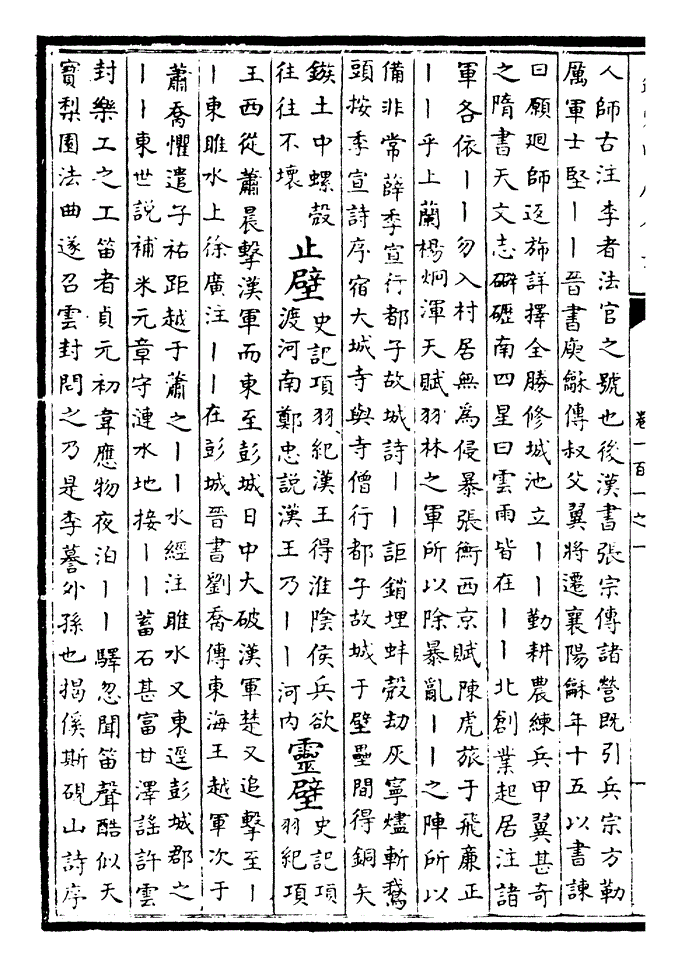 卷一百一之一
一
人師古注李者法官之號也後漢書張宗傳諸營既引兵宗方勒
厲軍士堅丨丨晉書庾龢傳叔父翼將遷襄陽龢年十五以書諫
曰願廻師返斾詳擇全勝修城池立丨丨勤耕農練兵甲翼甚奇
之隋書天文志礔礰南四星曰雲雨皆在丨丨北創業起居注諸
軍各依丨丨勿入村居無為侵暴張衡西京賦陳虎旅于飛廉正
丨丨乎上蘭楊炯渾天賦羽林之軍所以除暴亂丨丨之陣所以
備非常薛季宣行都子故城詩丨丨詎銷埋蚌殼劫灰寧燼斬鵞
頭按季宣詩序宿大城寺與寺僧行都子故城于壁壘間得銅矢
鏃土中螺殼
往往不壞
止壁
史記項羽紀漢王得淮陰侯兵欲
渡河南鄭忠說漢王乃丨丨河内
靈壁
史記項
羽紀項
王西從蕭晨擊漢軍而東至彭城日中大破漢軍楚又追擊至丨
丨東睢水上徐廣注丨丨在彭城晉書劉喬傳東海王越軍次于
蕭喬懼遣子祐距越于蕭之丨丨水經注睢水又東逕彭城郡之
丨丨東世說補米元章守漣水地接丨丨蓄石甚富甘澤謠許雲
封樂工之工笛者貞元初韋應物夜泊丨丨驛忽聞笛聲酷似天
寶梨園法曲遂召雲封問之乃是李謩外孫也揭傒斯硯山詩序